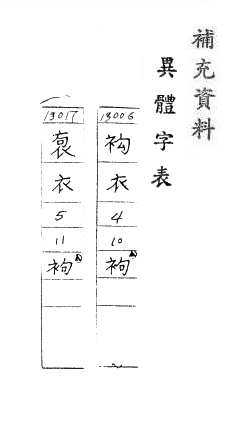 補充資料
異體字表
13006
衣
4
10
袧
13017
衣
5
11
袧